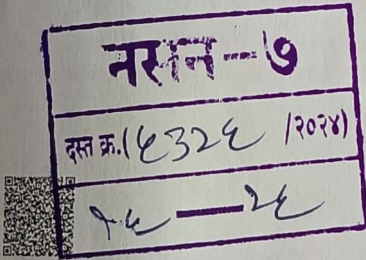 नसन-७
दस्त क्र.(६३२६ /२०२४)
१६ — २६